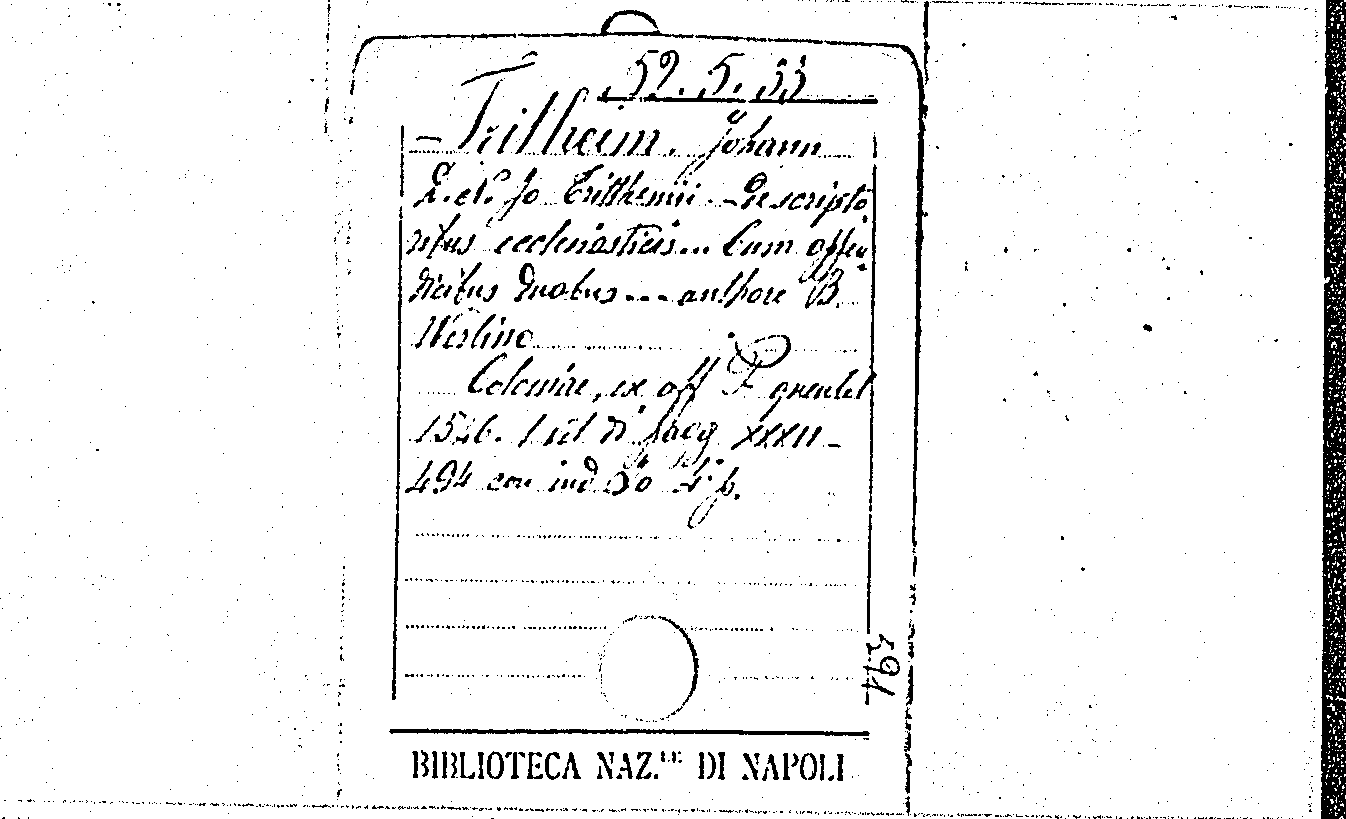 52. 5. 33
— Tritheim. Johann
D. d. Jo Tritthemii. — De scripto
ribus ecclesiasticis... Cum appen
dicibus duabus... authore B.
Werlino
Coloniae, ex off P quentel
1546. 1 vol di pagg XXXII —
494 con ind
BIBLIOTECA NAZ.LE DI NAPOLI
594